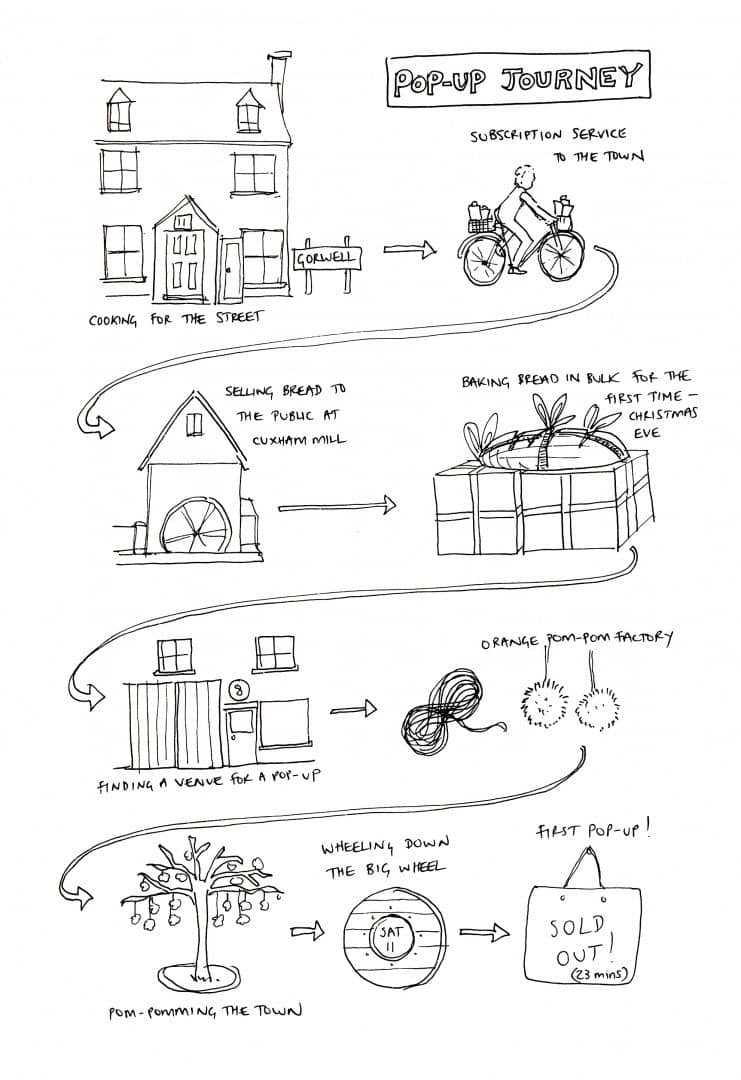 POP-UP JOURNEY
SUBSCRIPTION SERVICE
TO THE TOWN
11
GORWELL
COOKING FOR THE STREET
SELLING BREAD TO
THE PUBLIC AT
CUXHAM MILL
BAKING BREAD IN BULK FOR THE
FIRST TIME –
CHRISTMAS
EVE
ORANGE POM-POM FACTORY
8
FINDING A VENUE FOR A POP-UP
FIRST POP-UP!
WHEELING DOWN
THE BIG WHEEL
SAT
11
SOLD
OUT!
(23 mins)
POM-POMMING THE TOWN